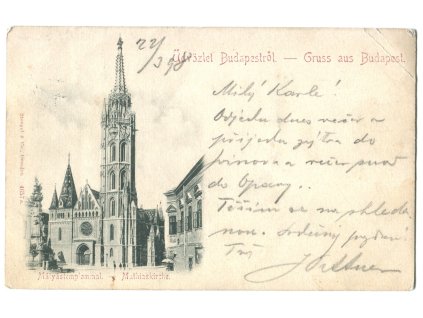 22/3 98
Üdvözlet Budapestről. — Gruss aus Budapest.
Milý Karle!
Odjedu dnes večer a
přijedu zýtra do
a večer snad
do Opavy..
Těším se na shleda
nou. Srdečný pozdrav!
Tvůj
Mátyástemplommal. Mathiaskirche.